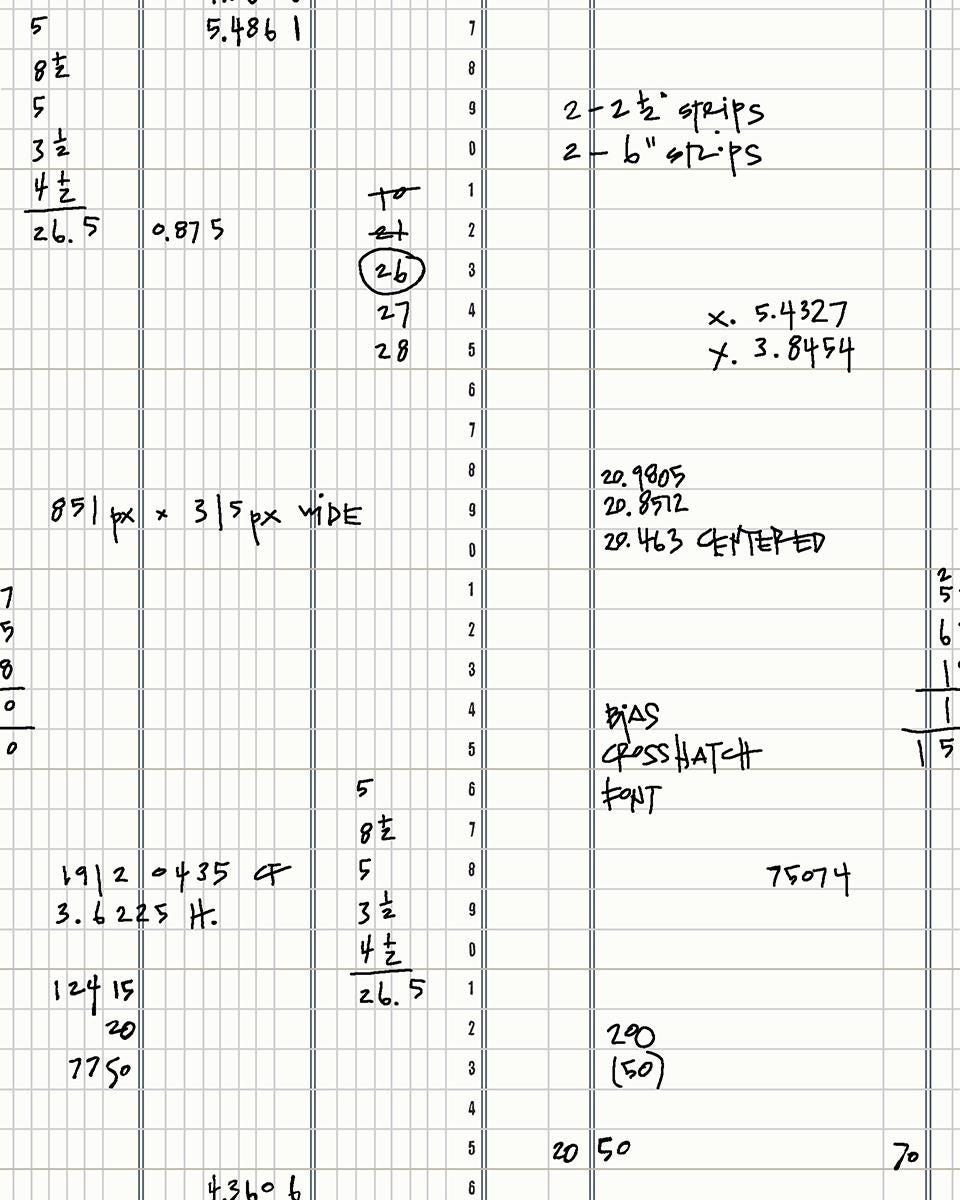 5
8 1/2
5
3 1/2
4 1/2
26.5
0.875
5.4861
10
21
26
27
28
7
8
9
0
1
2
3
4
5
6
7
8
9
0
1
2
3
4
5
6
7
8
9
0
1
2
3
4
5
6
2 - 2 1/2" strips
2 - 6" strips
x. 5.4327
y. 3.8454
851 px x 315 px WIDE
20.9805
20.8512
20.463 CENTERED
7
5
8
0
0
2
5
6
1
1
15
BIAS
CROSSHATCH
FONT
5
8 1/2
5
3 1/2
4 1/2
26.5
1912 0435 CF
3.6225 H.
75074
12415
20
7750
200
(50)
20 50
70
4.3606